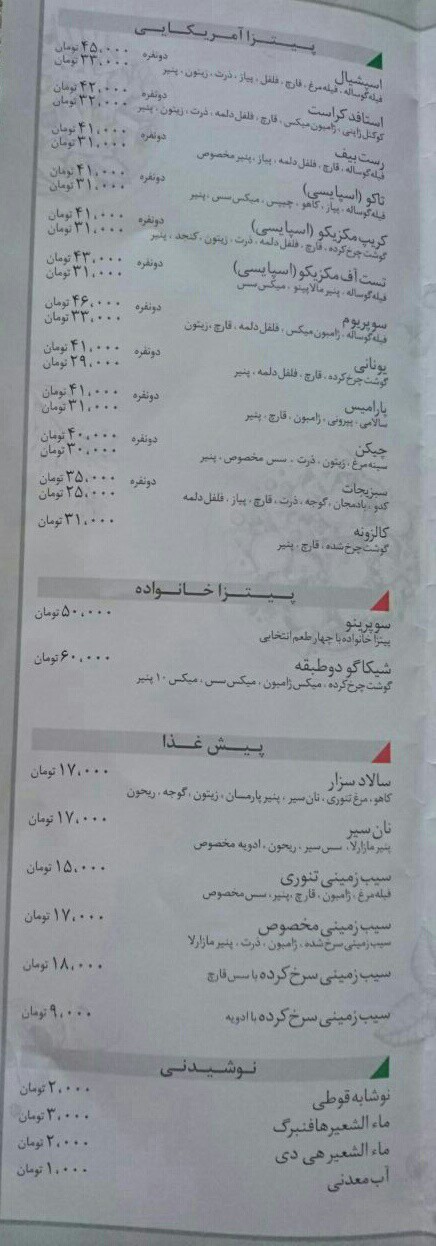 پیتزا آمریکایی
اسپشیال دونفره ۴۵،۰۰۰ تومان
۳۳،۰۰۰ تومان
فیله گوساله ، فیله مرغ ، قارچ ، فلفل ، پیاز ، ذرت ، زیتون ، پنیر
استافد کراست دونفره ۴۲،۰۰۰ تومان
۳۲،۰۰۰ تومان
کوکتل ژاپنی ، ژامبون میکس ، قارچ ، فلفل دلمه ، ذرت ، زیتون ، پنیر
رست بیف دونفره ۴۱،۰۰۰ تومان
۳۱،۰۰۰ تومان
فیله گوساله ، قارچ ، فلفل دلمه ، پیاز ، پنیر مخصوص
تاکو (اسپایسی) دونفره ۴۱،۰۰۰ تومان
۳۱،۰۰۰ تومان
فیله گوساله ، پیاز ، کاهو ، چیپس ، میکس سس ، پنیر
کریپ مکزیکو (اسپایسی) دونفره ۴۱،۰۰۰ تومان
۳۱،۰۰۰ تومان
گوشت چرخ کرده ، قارچ ، فلفل دلمه ، ذرت ، زیتون ، کنجد ، پنیر
تست آف مکزیکو (اسپایسی) دونفره ۴۳،۰۰۰ تومان
۳۱،۰۰۰ تومان
فیله گوساله ، پنیر مالاپینو ، میکس سس
سوپریوم دونفره ۴۶،۰۰۰ تومان
۳۳،۰۰۰ تومان
فیله گوساله ، ژامبون میکس ، فلفل دلمه ، قارچ ، زیتون
یونانی دونفره ۴۱،۰۰۰ تومان
۲۹،۰۰۰ تومان
گوشت چرخ کرده ، قارچ ، فلفل دلمه ، پنیر
پارامیس دونفره ۴۱،۰۰۰ تومان
۳۱،۰۰۰ تومان
سالامی ، پپرونی ، ژامبون ، قارچ ، پنیر
چیکن دونفره ۴۰،۰۰۰ تومان
۳۰،۰۰۰ تومان
سینه مرغ ، زیتون ، ذرت ، سس مخصوص ، پنیر
سبزیجات دونفره ۳۵،۰۰۰ تومان
۲۵،۰۰۰ تومان
کدو ، بادمجان ، گوجه ، ذرت ، قارچ ، پیاز ، فلفل دلمه
کالزونه ۳۱،۰۰۰ تومان
گوشت چرخ شده ، قارچ ، پنیر
پیتزا خانواده
سوپرینو ۵۰،۰۰۰ تومان
پیتزا خانواده با چهار طعم انتخابی
شیکاگو دو طبقه ۶۰،۰۰۰ تومان
گوشت چرخ کرده ، میکس ژامبون ، میکس سس ، میکس ۱۰ پنیر
پیش غذا
سالاد سزار ۱۷،۰۰۰ تومان
کاهو ، مرغ تنوری ، نان سیر ، پنیر پارمسان ، زیتون ، گوجه ، ریحون
نان سیر ۱۷،۰۰۰ تومان
پنیر مازارلا ، سس سیر ، ریحون ، ادویه مخصوص
سیب زمینی تنوری ۱۵،۰۰۰ تومان
فیله مرغ ، ژامبون ، قارچ ، پنیر ، سس مخصوص
سیب زمینی مخصوص ۱۷،۰۰۰ تومان
سیب زمینی سرخ شده ، ژامبون ، ذرت ، پنیر مازارلا
سیب زمینی سرخ کرده با سس قارچ ۱۸،۰۰۰ تومان
سیب زمینی سرخ کرده با ادویه ۹،۰۰۰ تومان
نوشیدنی
نوشابه قوطی ۲،۰۰۰ تومان
ماء الشعیر هافنبرگ ۳،۰۰۰ تومان
ماء الشعیر هی دی ۲،۰۰۰ تومان
آب معدنی ۱،۰۰۰ تومان